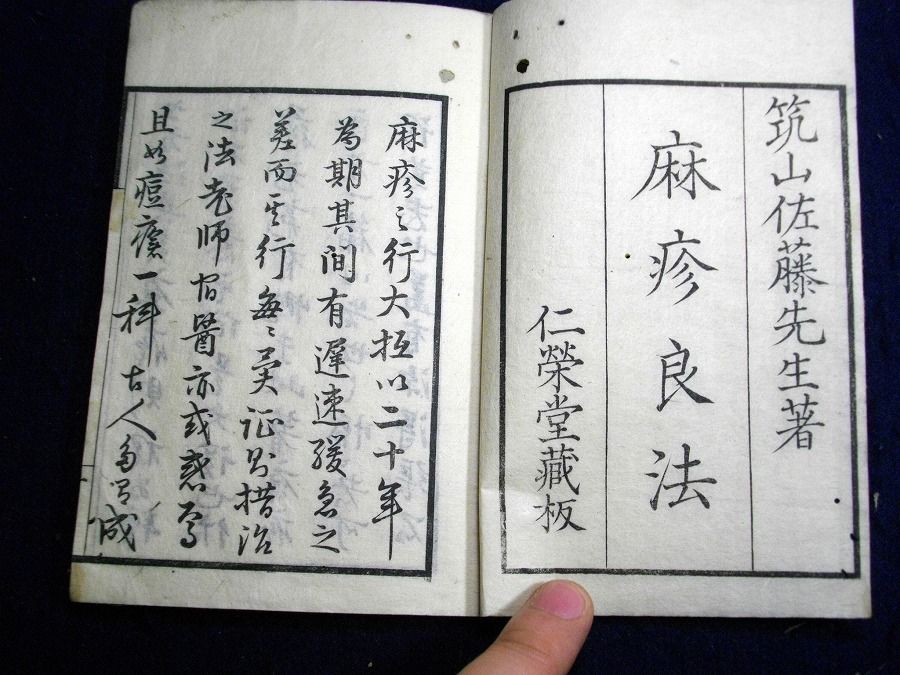 筑山佐藤先生著
麻疹良法
仁榮堂藏板
麻疹之行大抵以二十年
為期其間有遲速緩急之
差而其行每々異证则措治
之法老师宿醫亦或惑焉
且如痘瘡一科古人多為成